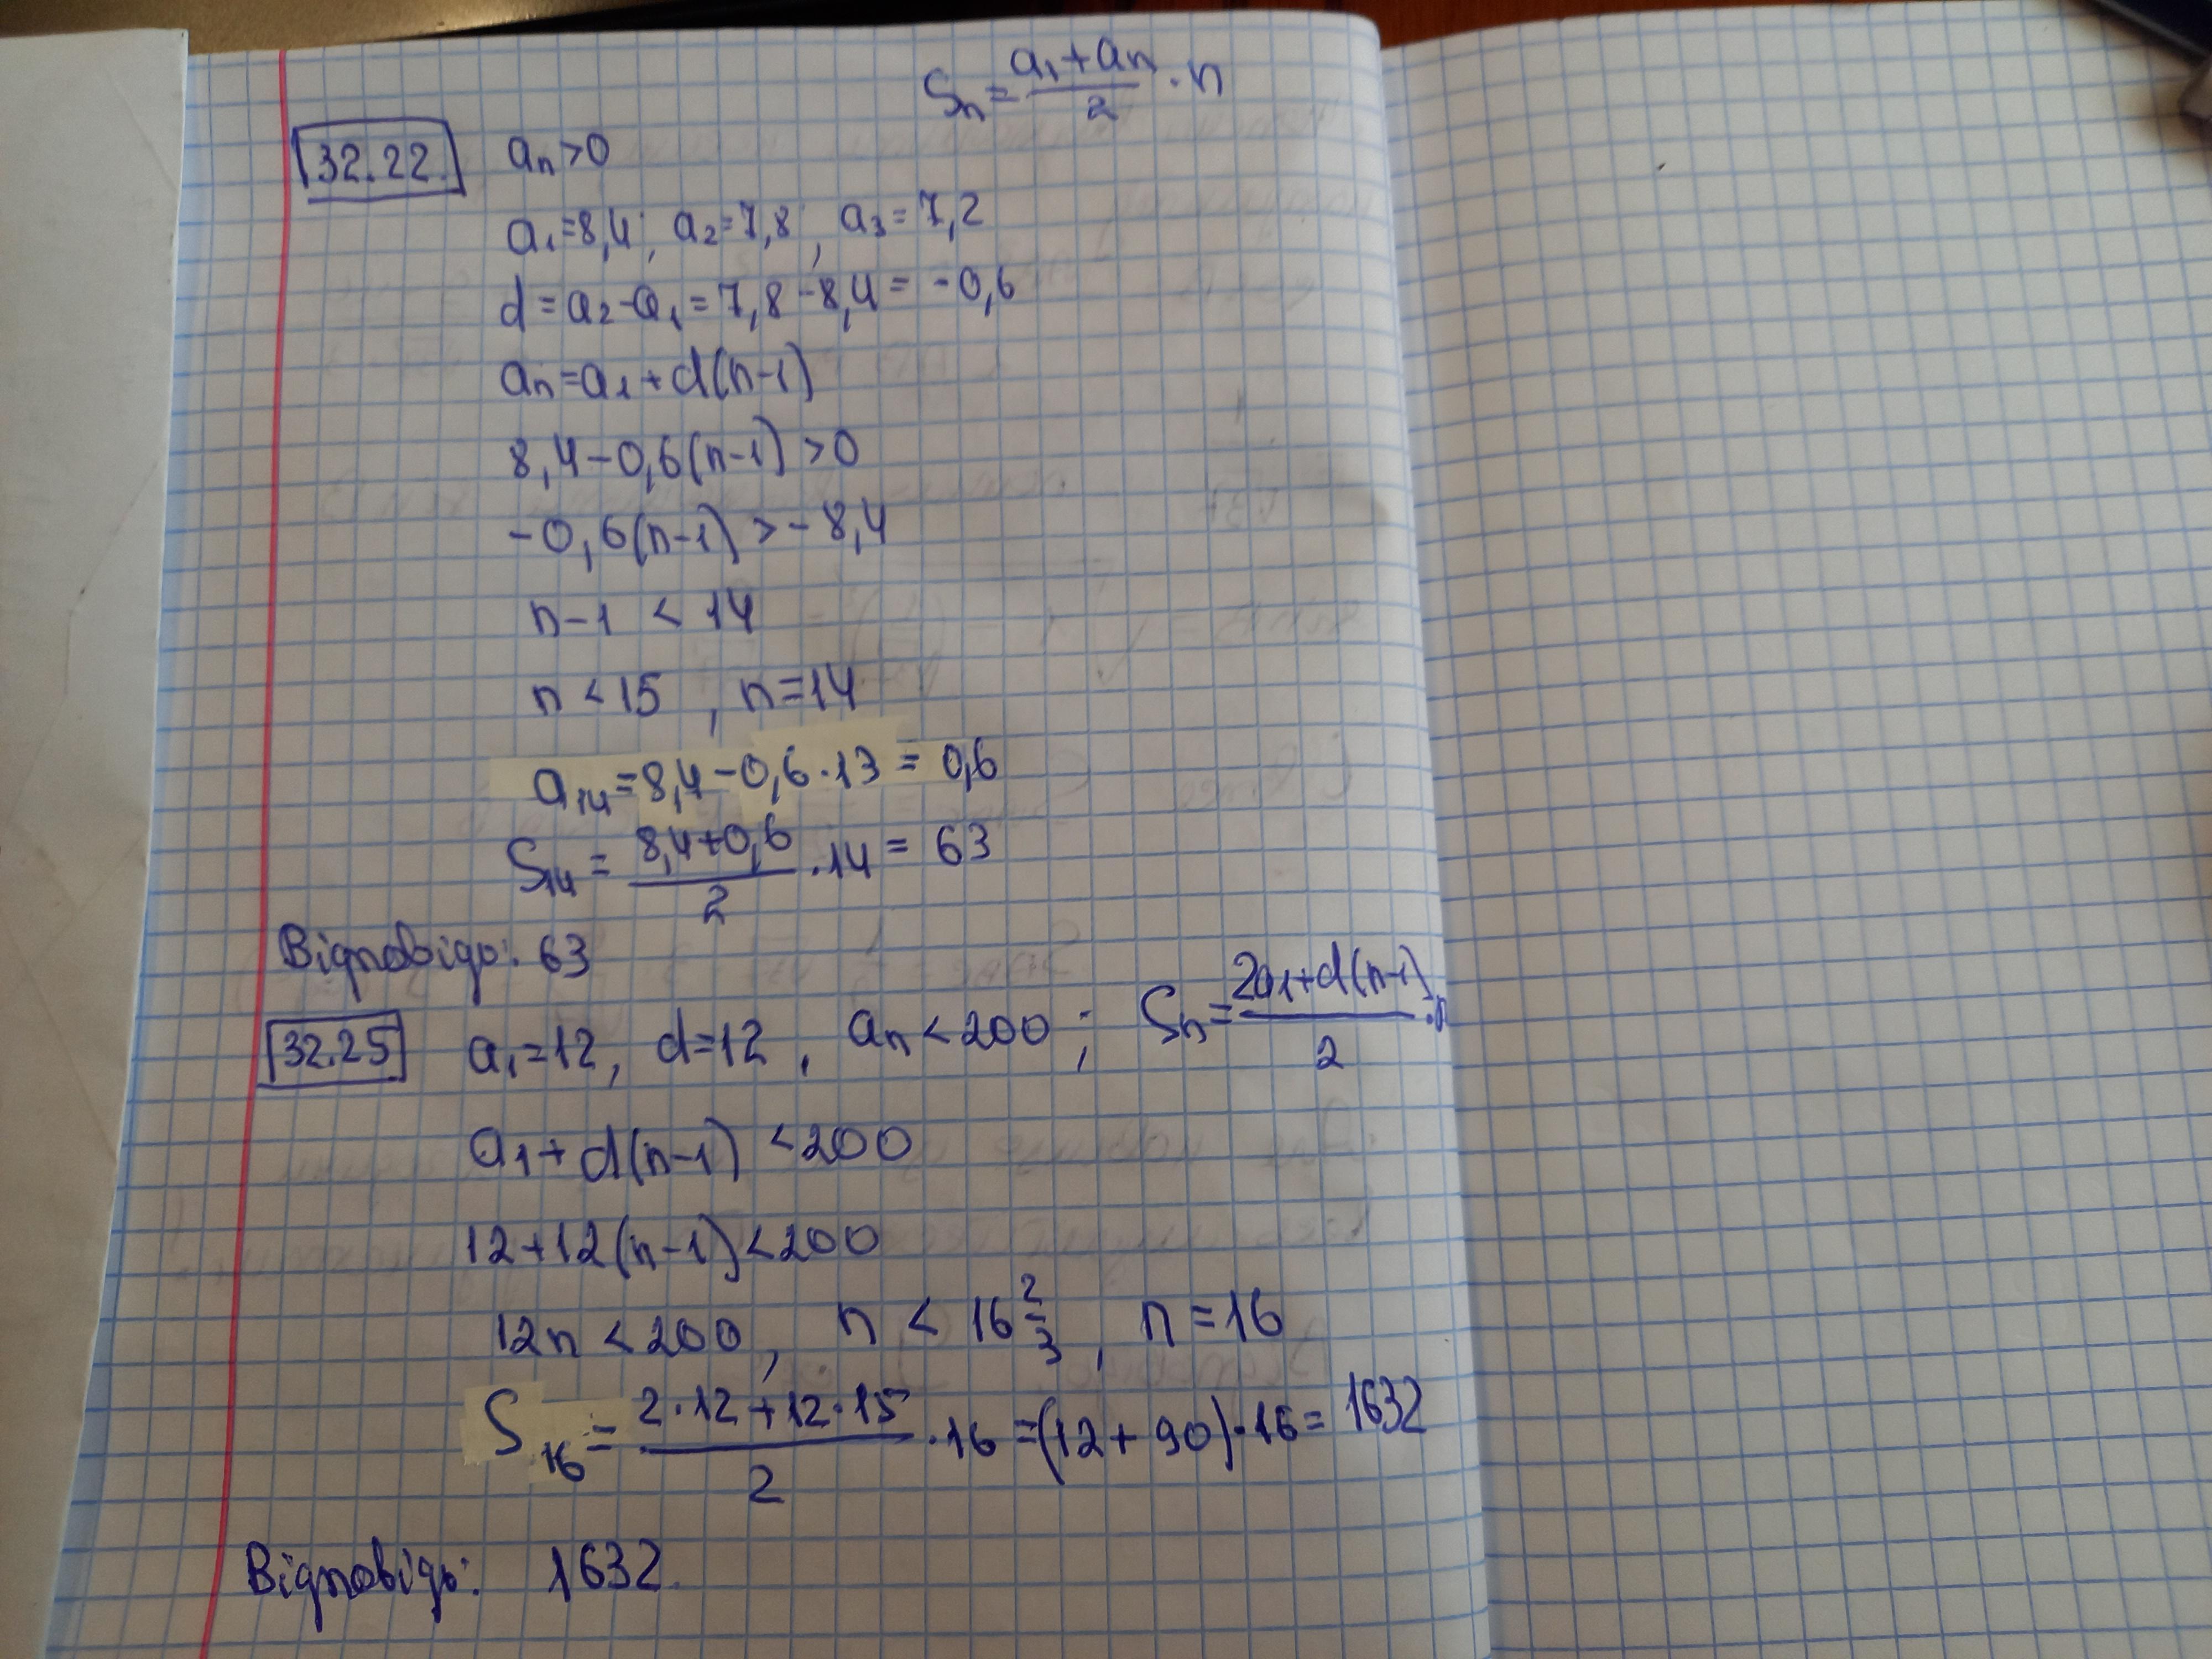 Sₙ = (a₁+aₙ)/2 · n
32.22. aₙ>0
a₁=8,4; a₂=7,8; a₃=7,2
d=a₂-a₁=7,8-8,4=-0,6
aₙ=a₁+d(n-1)
8,4-0,6(n-1)>0
-0,6(n-1)>-8,4
n-1<14
n<15, n=14
a₁₄=8,4-0,6·13=0,6
S₁₄=(8,4+0,6)/2·14=63
Відповідь: 63
32.25 a₁=12, d=12, aₙ<200; Sₙ=(2a₁+d(n-1))/2·n
a₁+d(n-1)<200
12+12(n-1)<200
12n<200, n<16 2/3, n=16
S₁₆=(2·12+12·15)/2·16=(12+90)·16=1632
Відповідь: 1632.